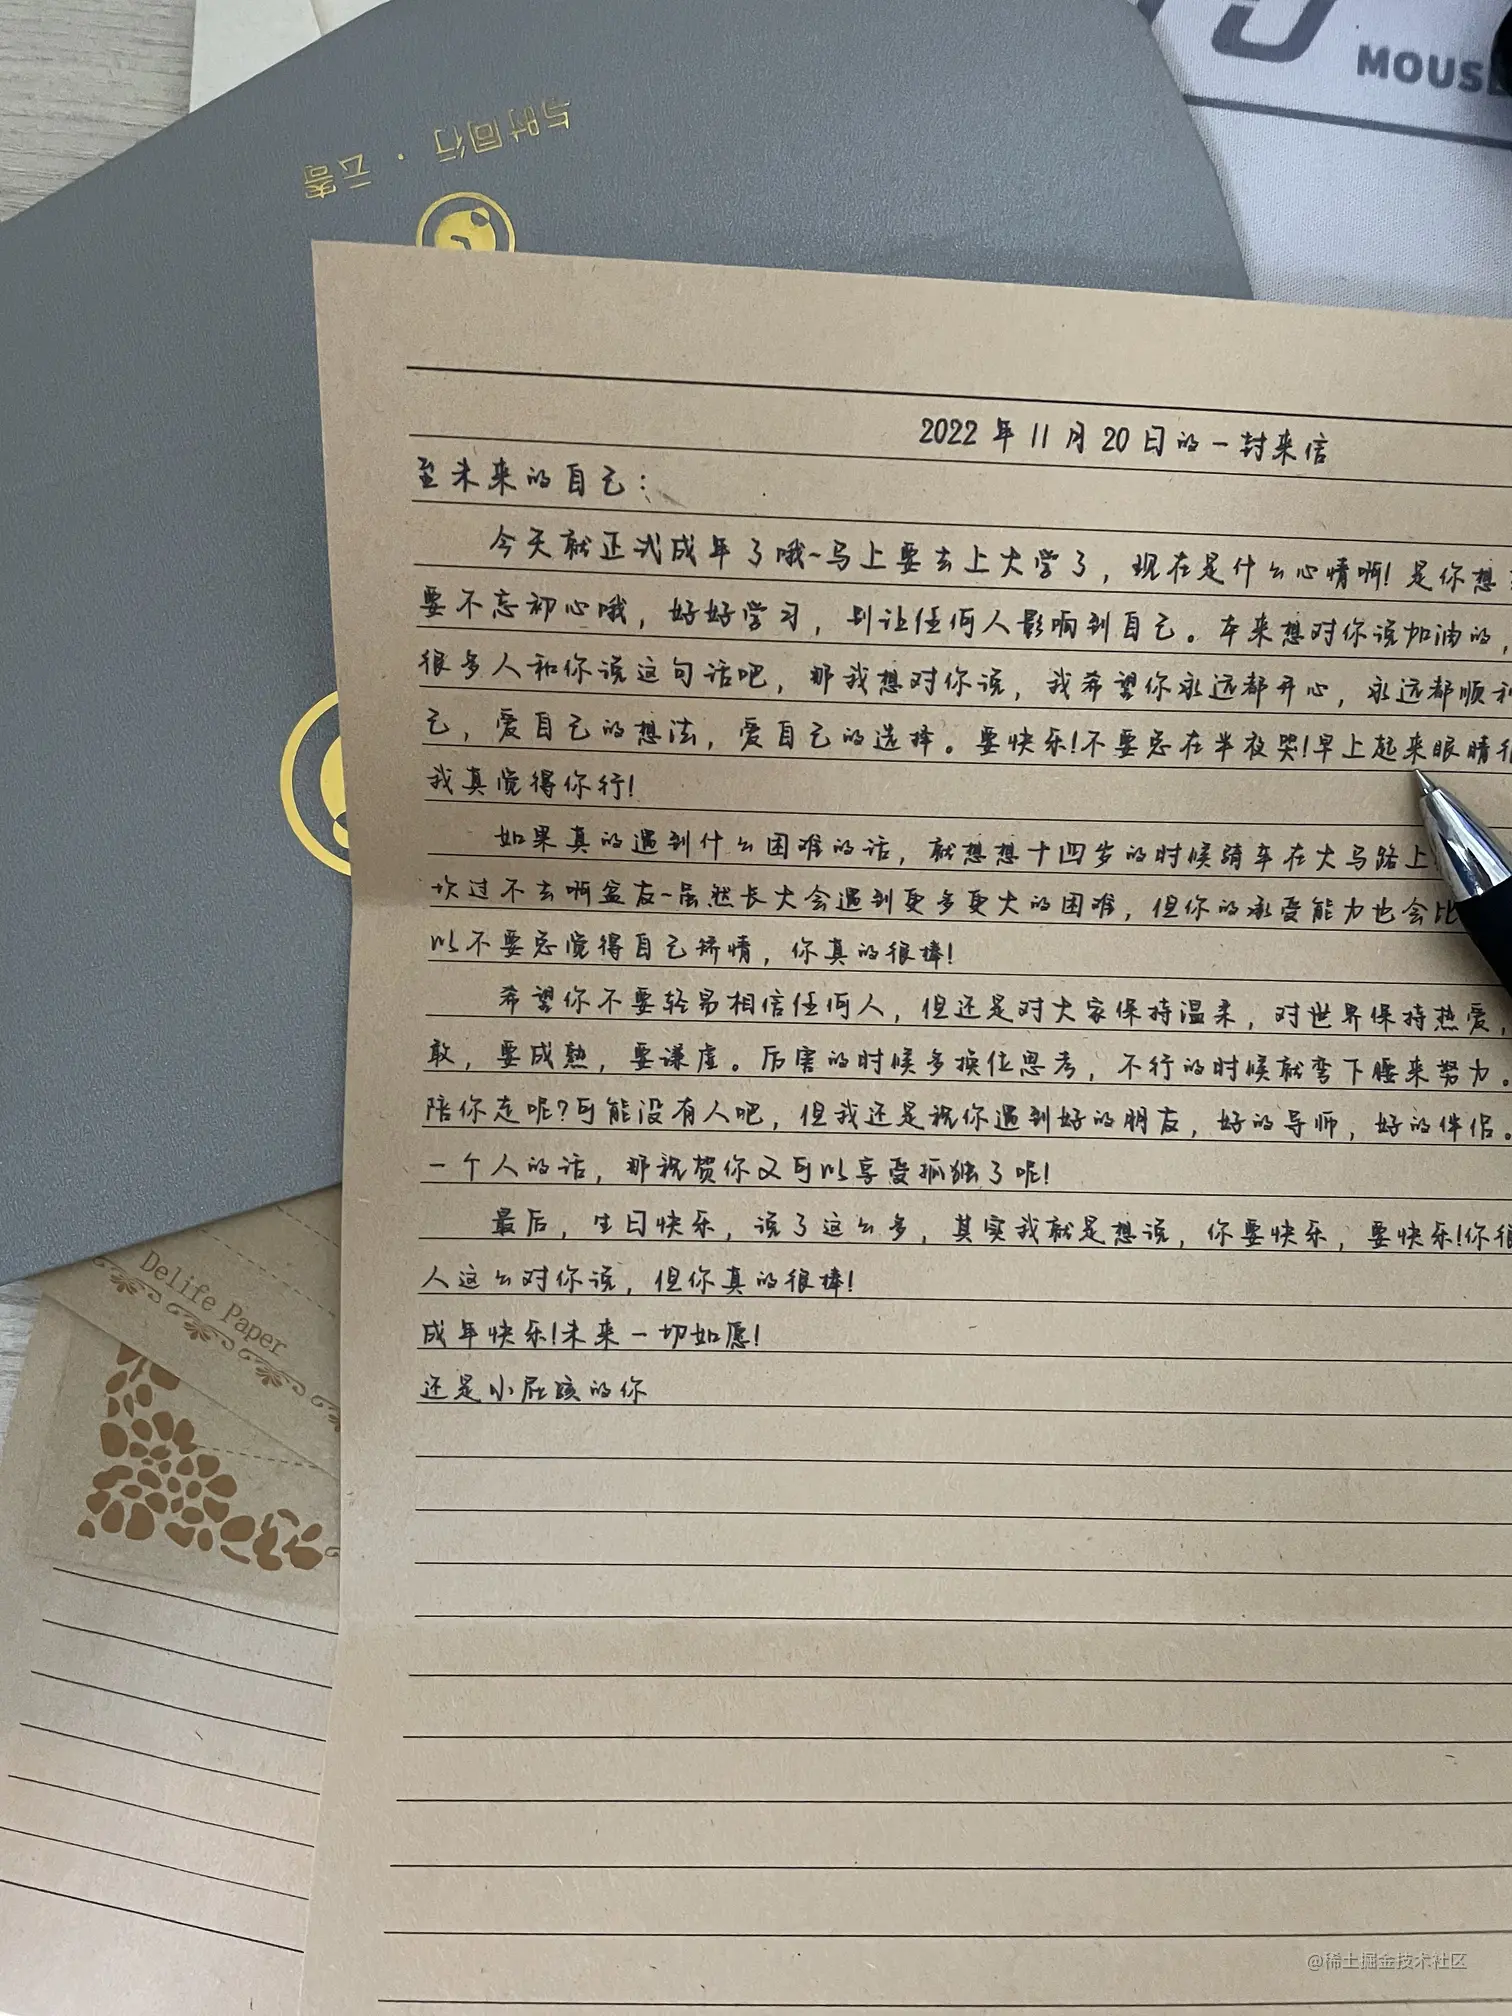 与时同行·云寄
MOUSE
2022年11月20日的一封来信
至未来的自己：
今天就正式成年了哦~马上要去上大学了，现在是什么心情啊！是你想
要不忘初心哦，好好学习，别让任何人影响到自己。本来想对你说加油的，
很多人和你说这句话吧，那我想对你说，我希望你永远都开心，永远都顺利
己，爱自己的想法，爱自己的选择。要快乐！不要总在半夜哭！早上起来眼睛很
我真觉得你行！
如果真的遇到什么困难的话，就想想十四岁的时候骑车在大马路上
坎过不去啊盆友~虽然长大会遇到更多更大的困难，但你的承受能力也会比
以不要总觉得自己矫情，你真的很棒！
希望你不要轻易相信任何人，但还是对大家保持温柔，对世界保持热爱，
敢，要成熟，要谦虚。厉害的时候多换位思考，不行的时候就弯下腰来努力。
陪你走呢？可能没有人吧，但我还是祝你遇到好的朋友，好的导师，好的伴侣。
一个人的话，那祝贺你又可以享受孤独了呢！
最后，生日快乐，说了这么多，其实我就是想说，你要快乐，要快乐！你很
人这么对你说，但你真的很棒！
成年快乐！未来一切如愿！
还是小屁孩的你
Delife Paper
@稀土掘金技术社区